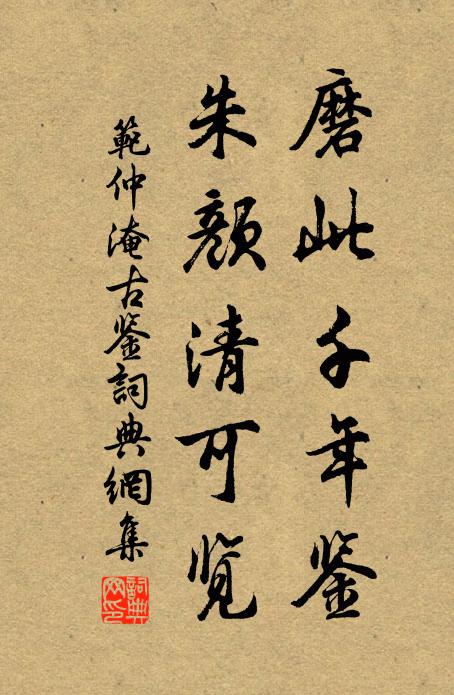 磨此千年鉴
朱颜清可览
範仲淹古鉴詞典網集
詞典網印